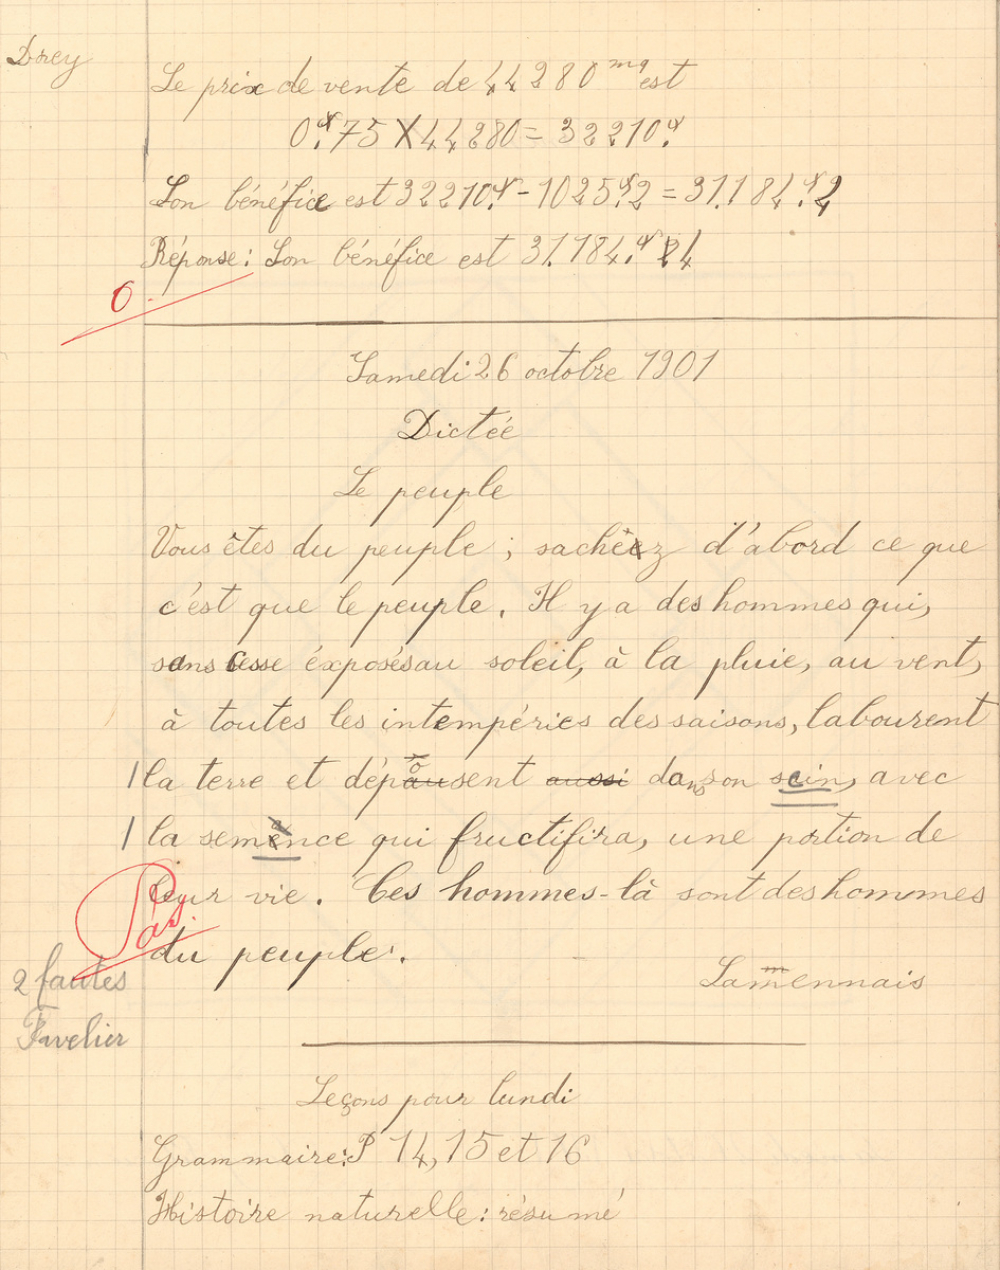 Drey
Le prix de vente de 44280 mq est
0f,75 X 44280 = 32210f
Son bénéfice est 32210f, - 1025f,2 = 31.184f,2
Réponse : Son bénéfice est 31.184,f
0
Samedi 26 octobre 1901
Dictée
Le peuple
Vous êtes du peuple ; sachez d'abord ce que
c'est que le peuple. Il y a des hommes qui,
sans cesse éxposés au soleil, à la pluie, au vent,
à toutes les intempéries des saisons, labourent
1 la terre et déposent aussi dans son sein, avec
1 la semence qui fructifira, une portion de
leur vie. Ces hommes-là sont des hommes
du peuple.
2 fautes
Lamennais
Favelier
Leçons pour lundi
Grammaire : P 14, 15 et 16
Histoire naturelle : résumé